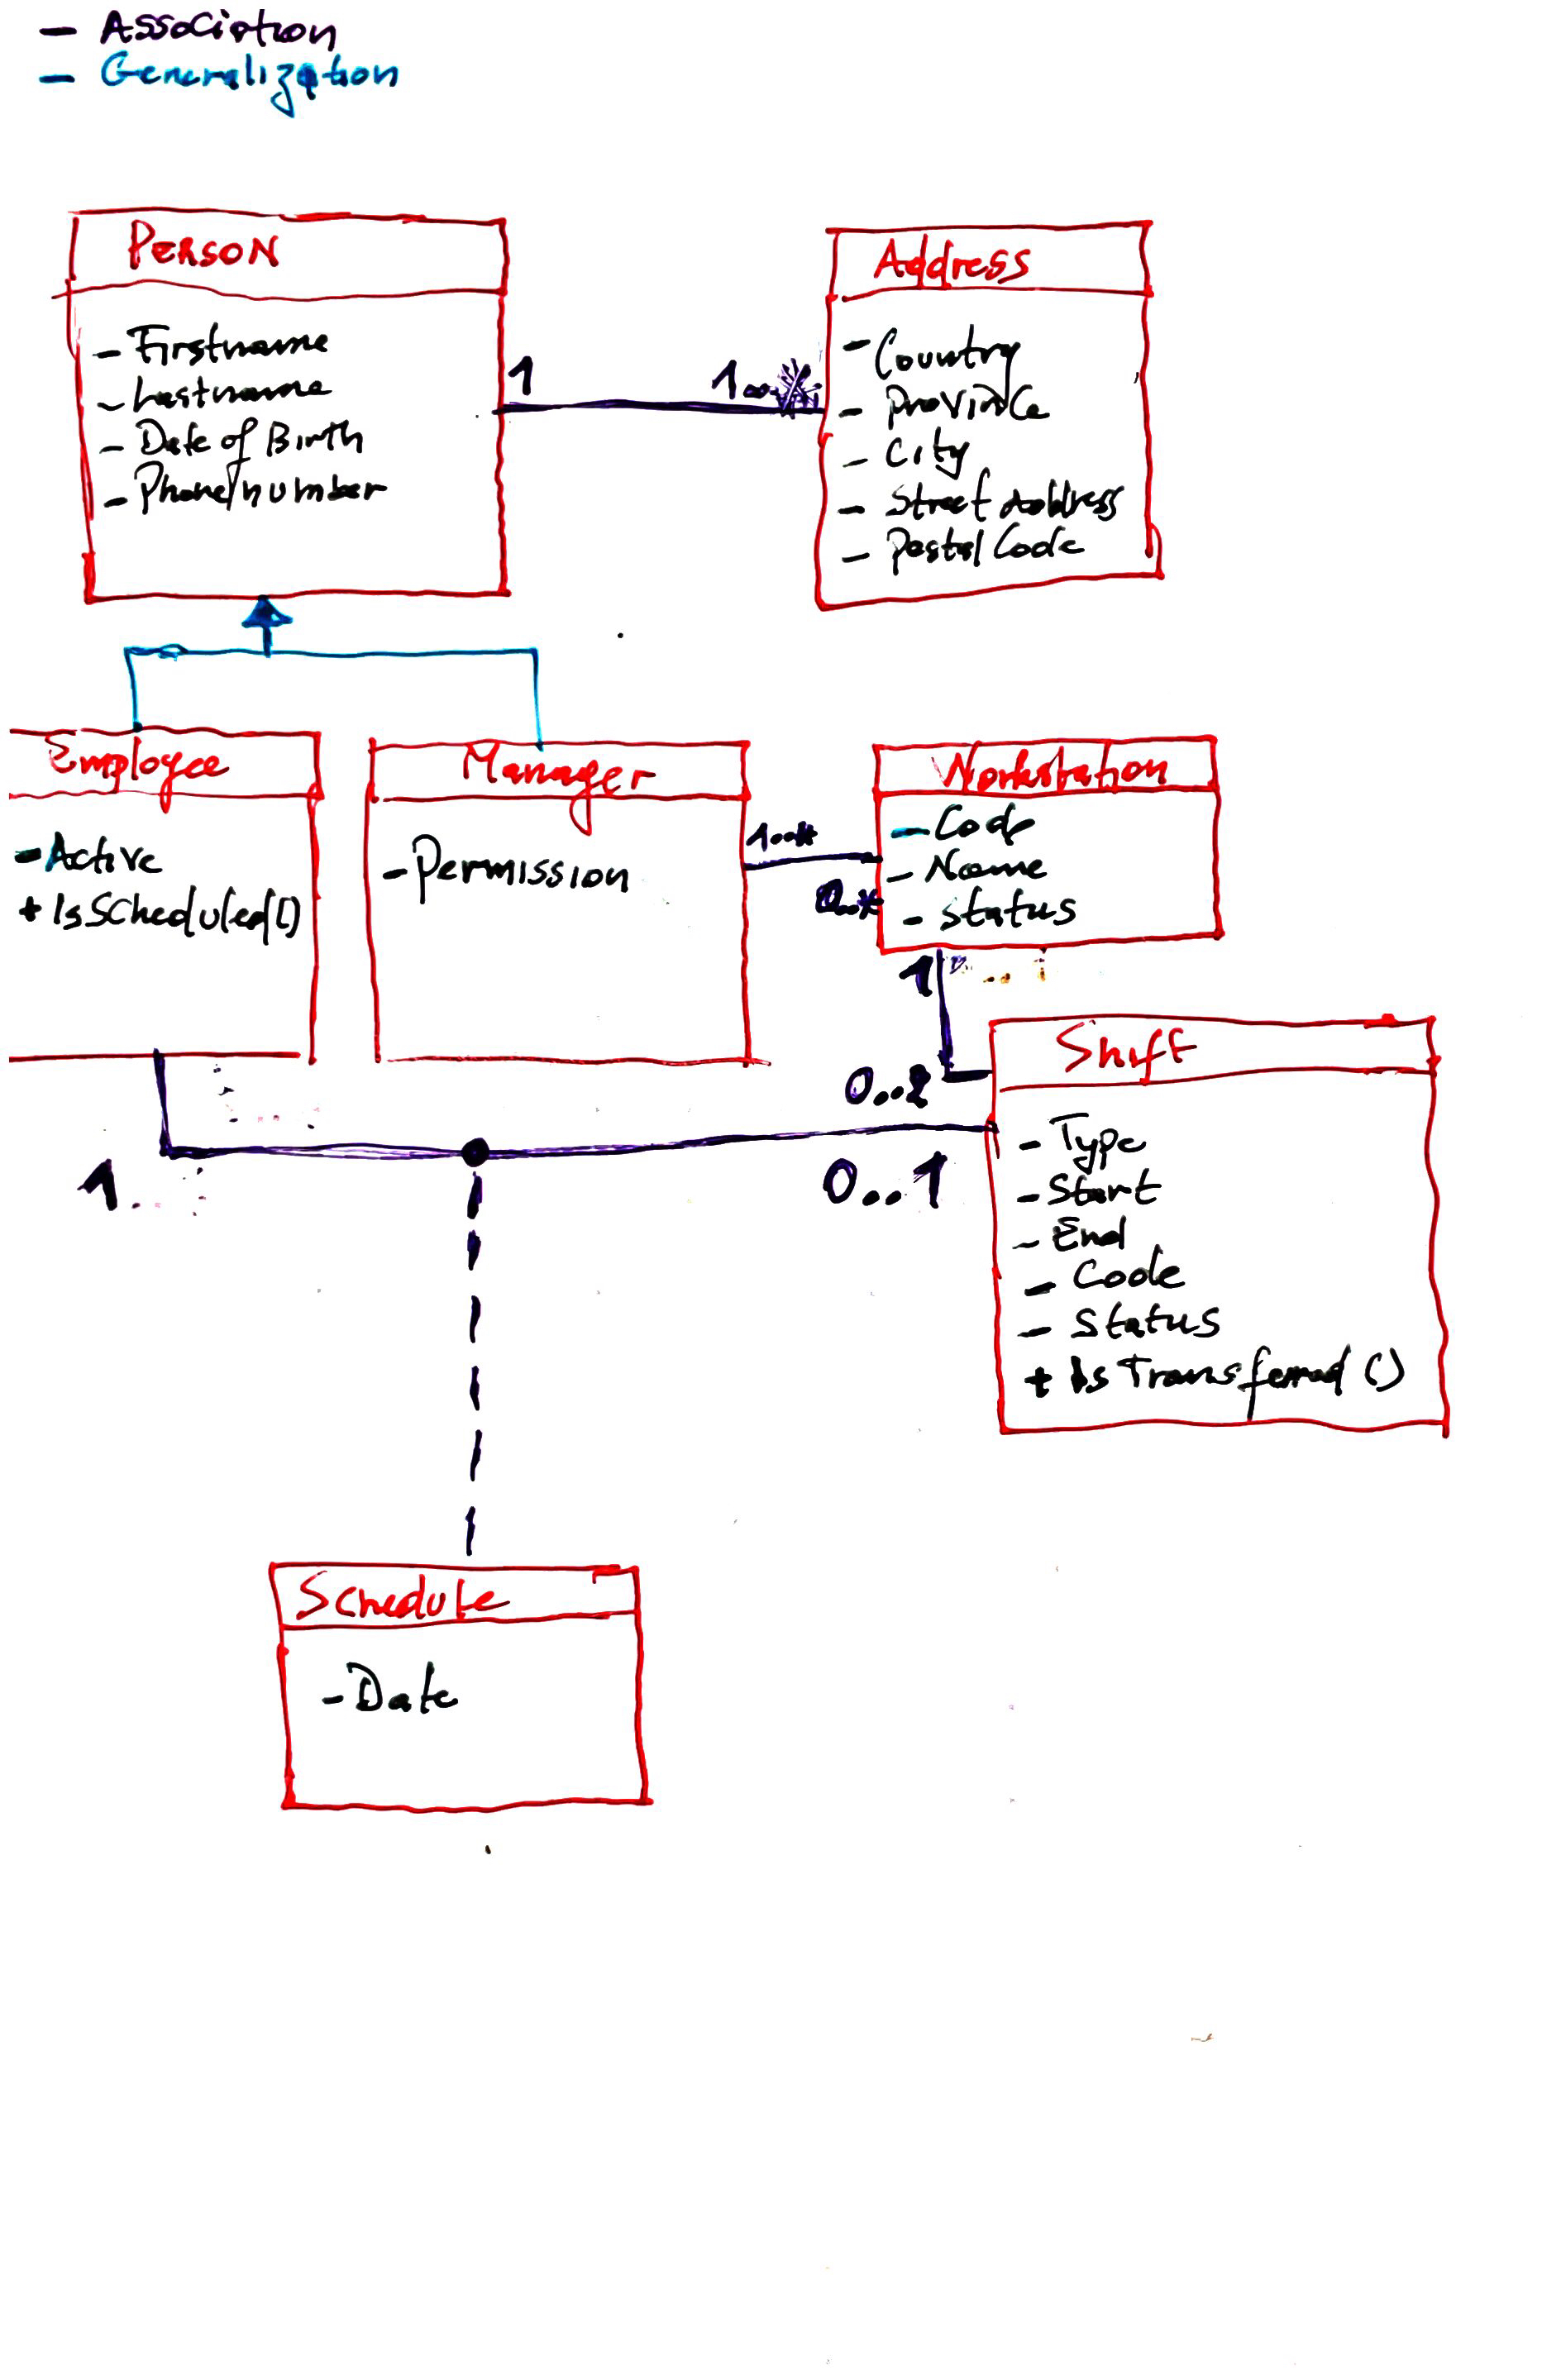 - Association
- Generalization
Person
- Firstname
- Lastname
- Date of Birth
- Phone number
1
1..*
Address
- Country
- Province
- City
- Street Address
- Postal Code
Employee
- Active
+ IsScheduled()
Manager
- Permission
1..*
0..*
Workstation
- Code
- Name
- Status
1
0..2
Shift
- Type
- Start
- End
- Code
- Status
+ IsTransferred ()
1
0..1
Schedule
- Date